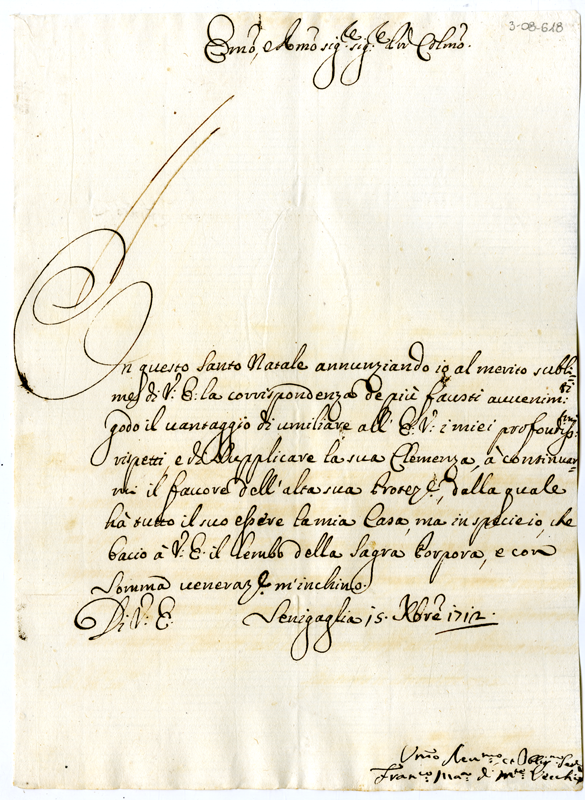 3-08-618
Emo, e Rmo sig.re sig.re Prō Colmo.
In questo Santo Natale annunziando io al merito subli-
me di V. E. la corrispondenza de più fausti auuenim.ti
godo il uantaggio di umiliare all' E. V. i miei profondis.mi
rispetti, e di supplicare la sua Clemenza, à continuar
mi il fauore dell' alta sua Protez.e, dalla quale
hà tutto il suo essere la mia Casa, ma in specie io, che
bacio à V. E. il lembo della Sagra Porpora, e con
somma ueneraz.e m'inchino.
Di V. E. Senigaglia 15. Xbre 1712.
Vmo Deu.mo et Obblig.mo
Fran.co Ma. di M.te Vecchio